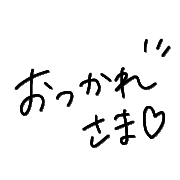 おつかれ
さま♡